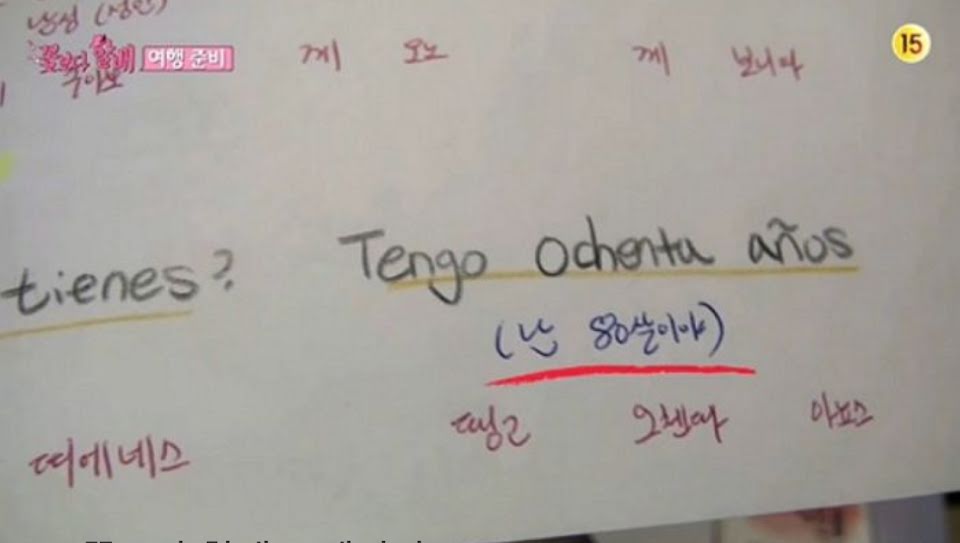 남성 (성인)
꽃보다 할배 여행 준비
15
께 모노 께 보니따
tienes? Tengo ochenta años
(난 80살이야)
띠에네스 땡고 오첸따 아뇨스